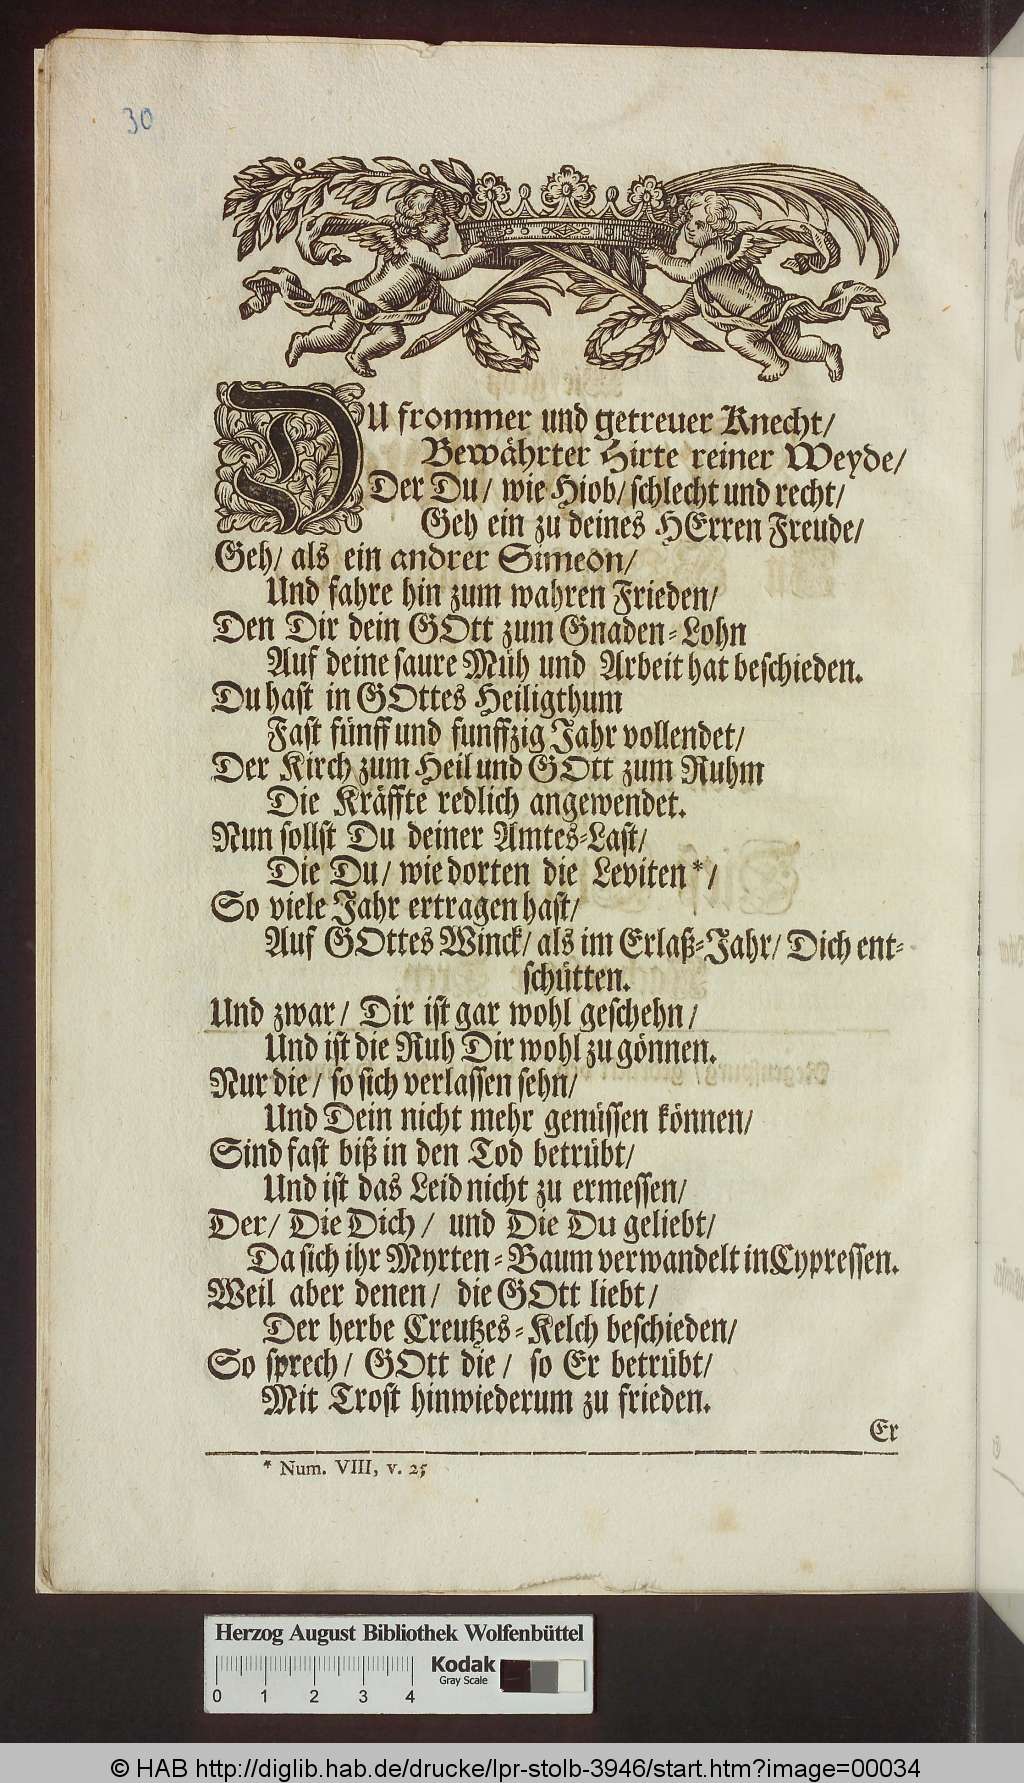 30
DU frommer und getreuer Knecht/
Bewährter Hirte reiner Weyde/
Der Du/ wie Hiob/ schlecht und recht/
Geh ein zu deines HErren Freude/
Geh/ als ein andrer Simeon/
Und fahre hin zum wahren Frieden/
Den Dir dein GOtt zum Gnaden-Lohn
Auf deine saure Müh und Arbeit hat beschieden.
Du hast in GOttes Heiligthum
Fast fünff und funffzig Jahr vollendet/
Der Kirch zum Heil und GOtt zum Ruhm
Die Kräffte redlich angewendet.
Nun sollst Du deiner Amtes-Last/
Die Du/ wie dorten die Leviten*/
So viele Jahr ertragen hast/
Auf GOttes Winck/ als im Erlaß-Jahr/ Dich ent-
schütten.
Und zwar/ Dir ist gar wohl geschehn/
Und ist die Ruh Dir wohl zu gönnen.
Nur die/ so sich verlassen sehn/
Und Dein nicht mehr genüssen können/
Sind fast biß in den Tod betrübt/
Und ist das Leid nicht zu ermessen/
Der/ Die Dich/ und Die Du geliebt/
Da sich ihr Myrten-Baum verwandelt in Cypressen.
Weil aber denen/ die GOtt liebt/
Der herbe Creutzes-Kelch beschieden/
So sprech/ GOtt die/ so Er betrübt/
Mit Trost hinwiederum zu frieden.
Er
* Num. VIII, v. 25
Herzog August Bibliothek Wolfenbüttel
Kodak
Gray Scale
0 1 2 3 4
© HAB http://diglib.hab.de/drucke/lpr-stolb-3946/start.htm?image=00034